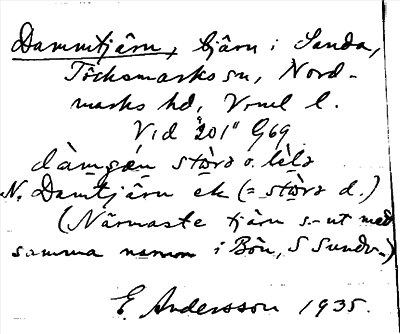 Dammtjärn, tjärn i Sanda,
Töcksmarks sn, Nord-
marks hd, Vrml l.
Vid "201" G69
dàmgǝn stòrǝ o. lèlǝ
N. Damtjärn ek (= stòrǝ d.)
(Närmaste tjärn s.-ut med
samma namn i Bön, S Sundv.)
E. Andersson 1935.